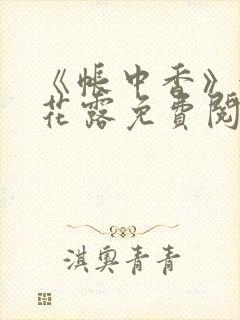 《帐中香》
花露免費閱
淇奥青青